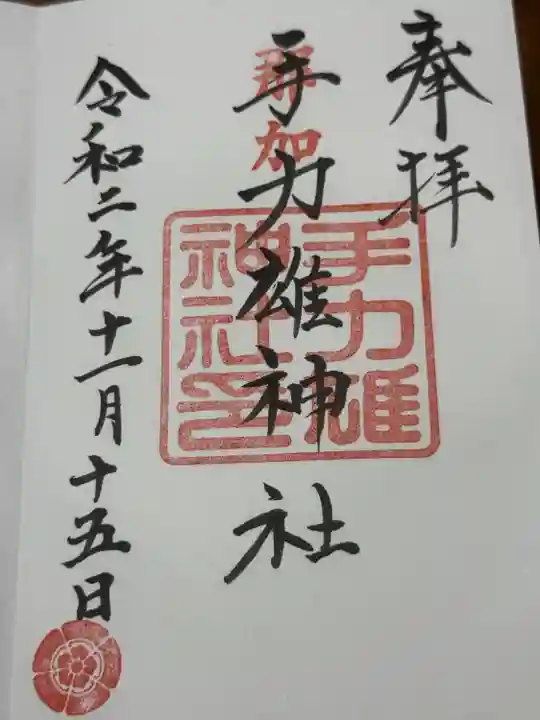 奉拝
那加
手力雄神社
手力雄
神社印
令和二年十一月十五日